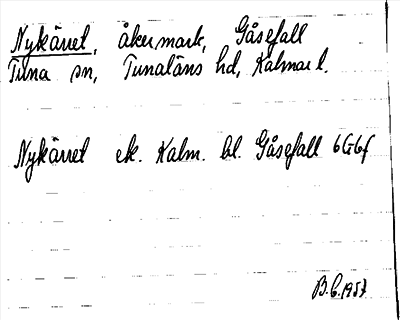 Nykärret, åkermark, Gåsefall
Tuna sn, Tunaläns hd, Kalmar l.
Nykärret ek. Kalm. bl. Gåsefall 6G6f
B.C. 1957